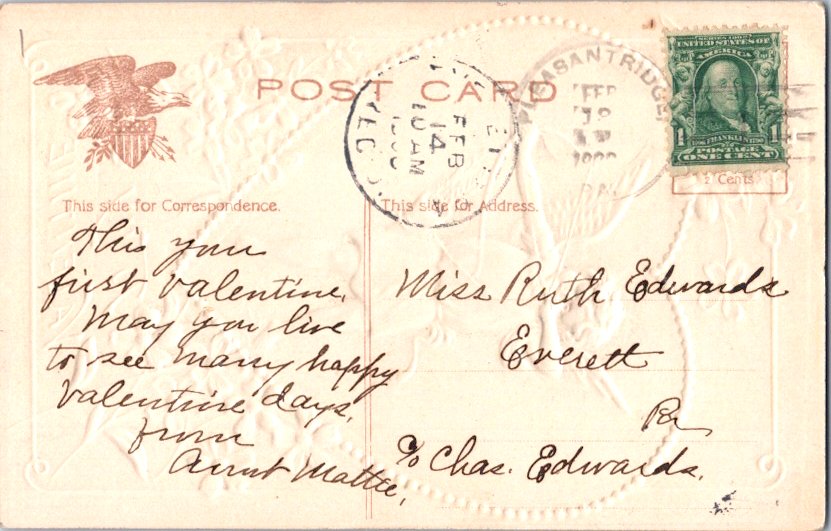 POST CARD
PLEASANTRIDGE,
FEB
1908
FEB
14
10 AM
REC'D.
SERIES 1902
UNITED STATES OF
AMERICA
1 FRANKLIN 1
POSTAGE
ONE CENT
2 Cents
This side for Correspondence.
This side for Address.
This your
first valentine.
May you live
to see many happy
valentine days.
from
Aunt Mattie.
Miss Ruth Edwards
Everett
Pa
c/o Chas. Edwards.